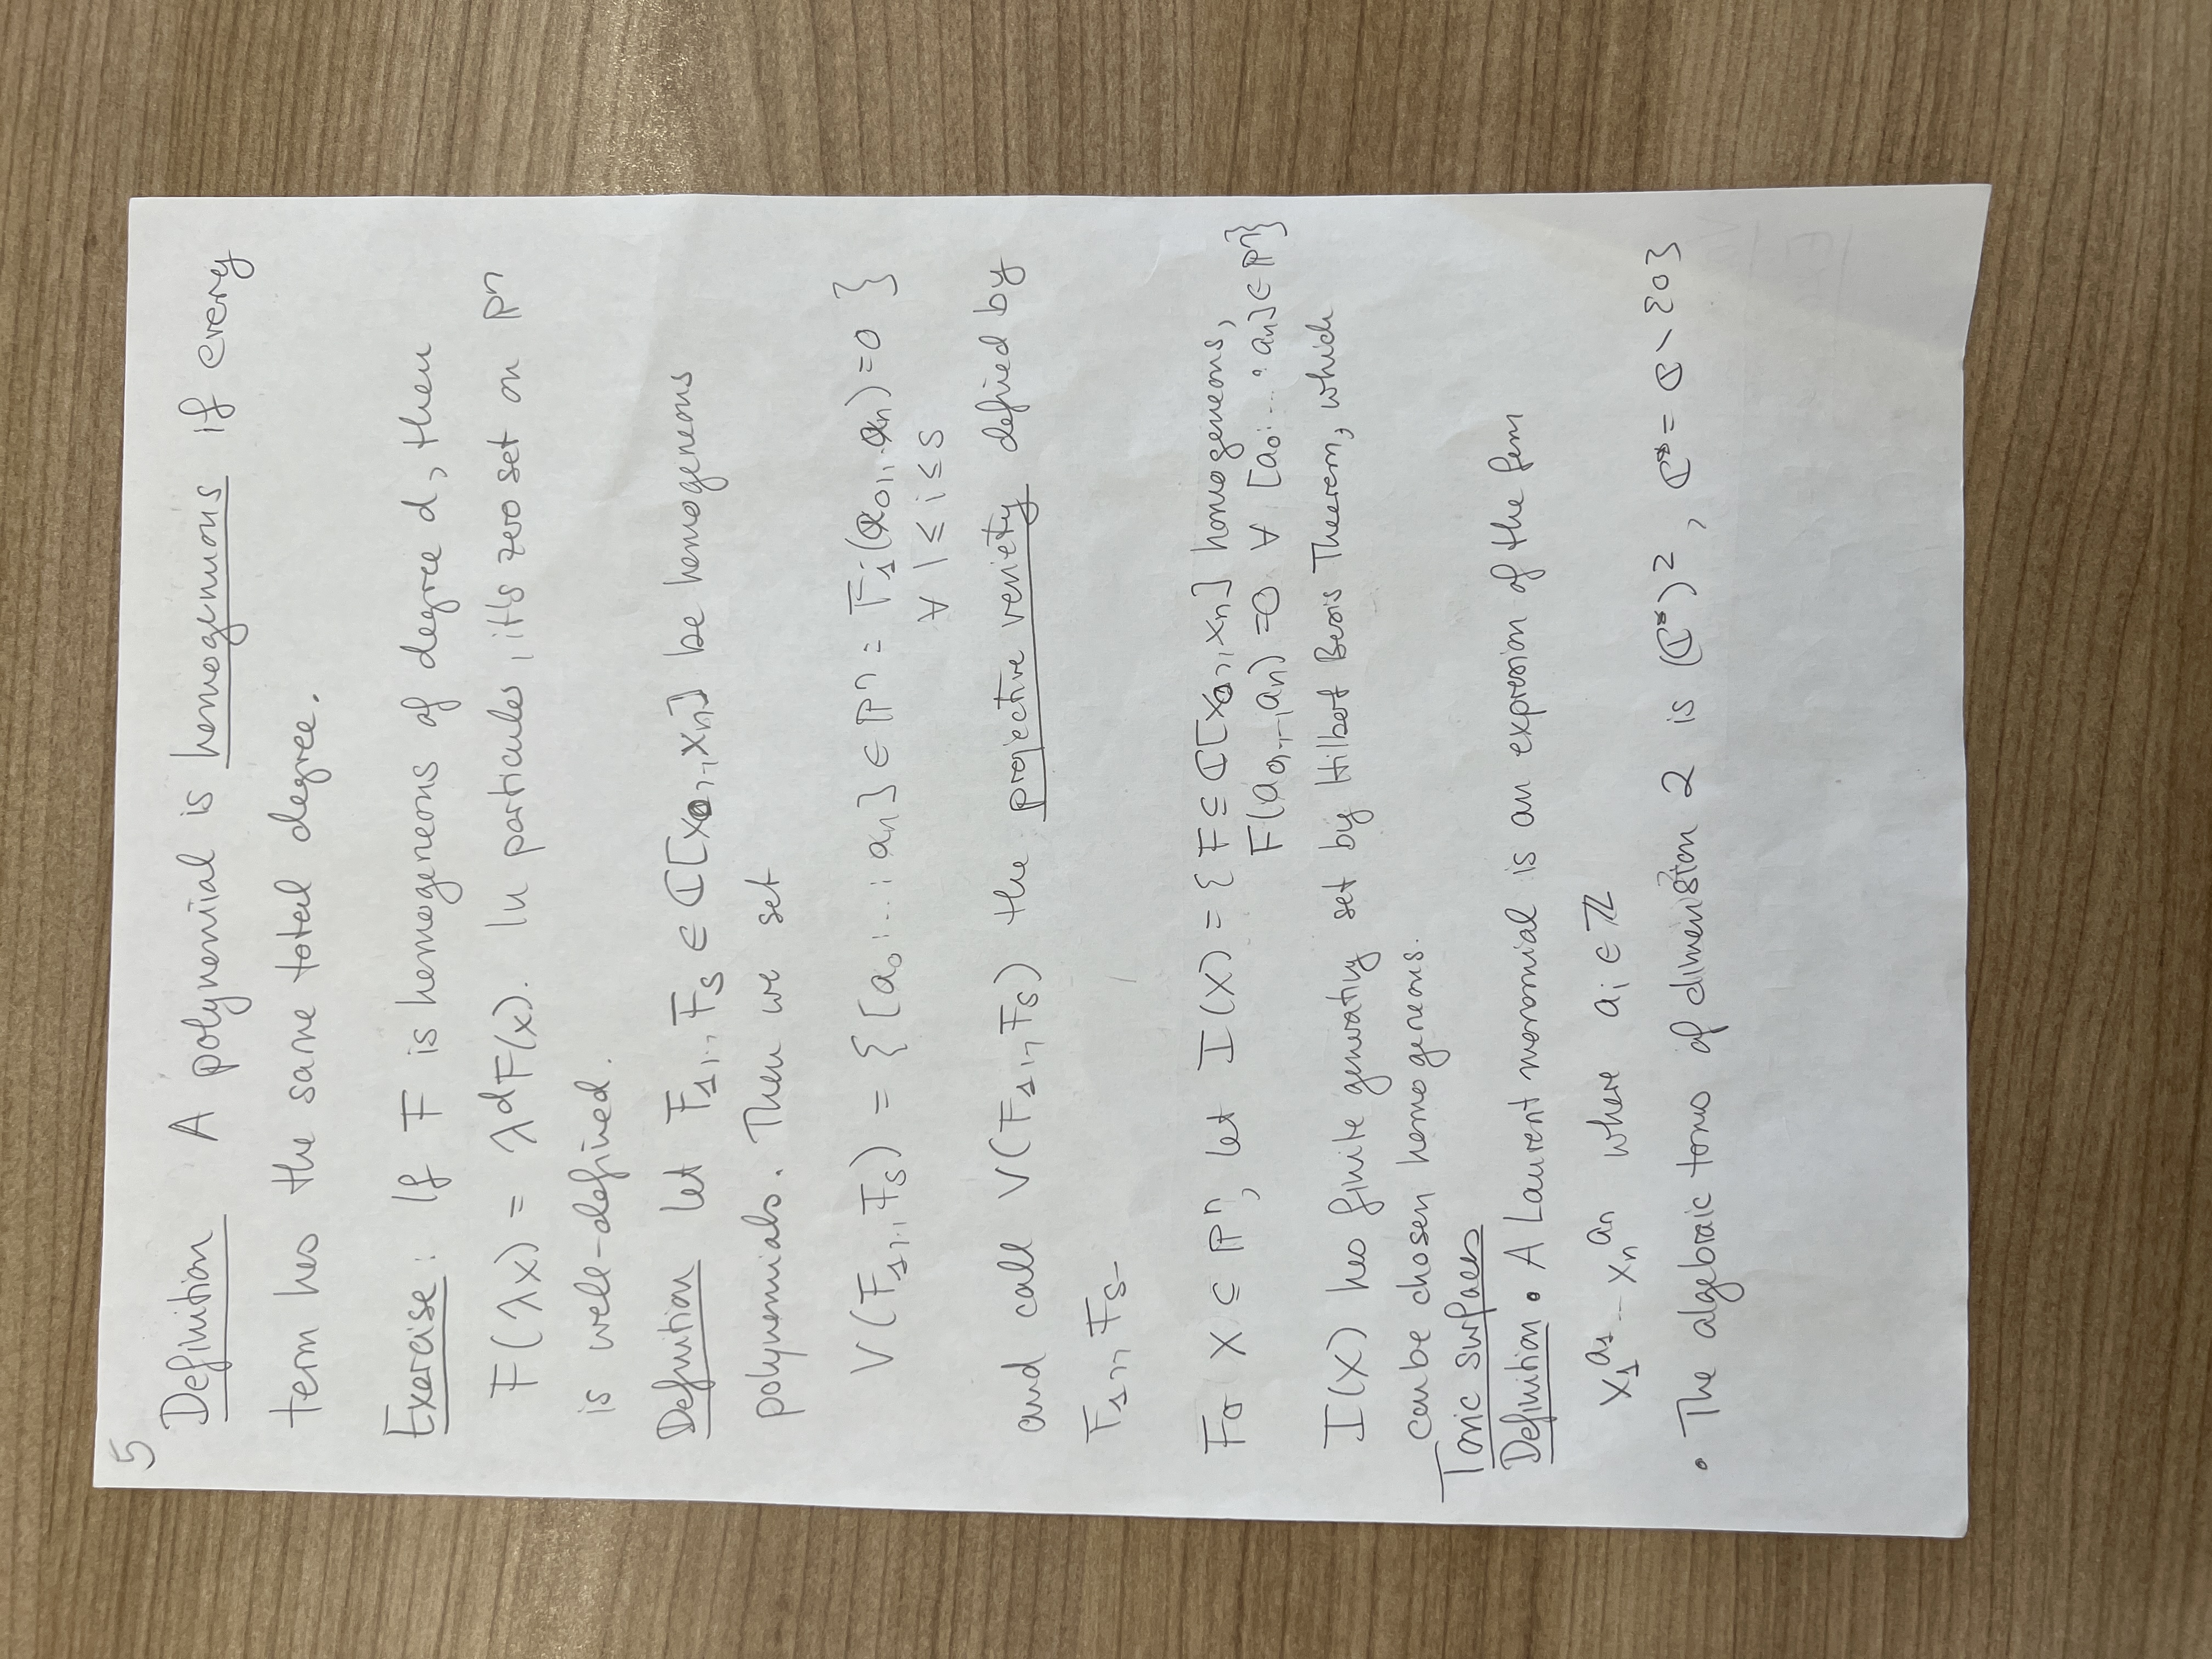 5
Definition A polynomial is homogenuous if every
term has the same total degree.
Exercise: If F is homogeneous of degree d, then
F(λx) = λ^d F(x). In particular, it's zero set on ℙ^n
is well-defined.
Definition Let F_1,..,F_s ∈ ℂ[x_0,..,x_n] be homogeneous
polynomials. Then we set
V(F_1,..,F_s) = { [a_0:...:a_n] ∈ ℙ^n : F_i(a_0,..,a_n)=0 }
∀ 1 ≤ i ≤ s
and call V(F_1,..,F_s) the projective variety defined by
F_1,..,F_s.
For X ⊆ ℙ^n, let I(X) = { F ⊆ ℂ[x_0,..,x_n] homogeneous,
F(a_0,...,a_n) = 0 ∀ [a_0:...:a_n] ∈ ℙ^n }
I(X) has finite generating set by Hilbert Basis Theorem, which
can be chosen homogeneous.
Toric surfaces
Definition • A Laurent monomial is an expression of the form
x_1^{a_1}...x_n^{a_n} where a_i ∈ ℤ
• The algebraic torus of dimension 2 is (ℂ*)^2, ℂ* = ℂ \ {0}